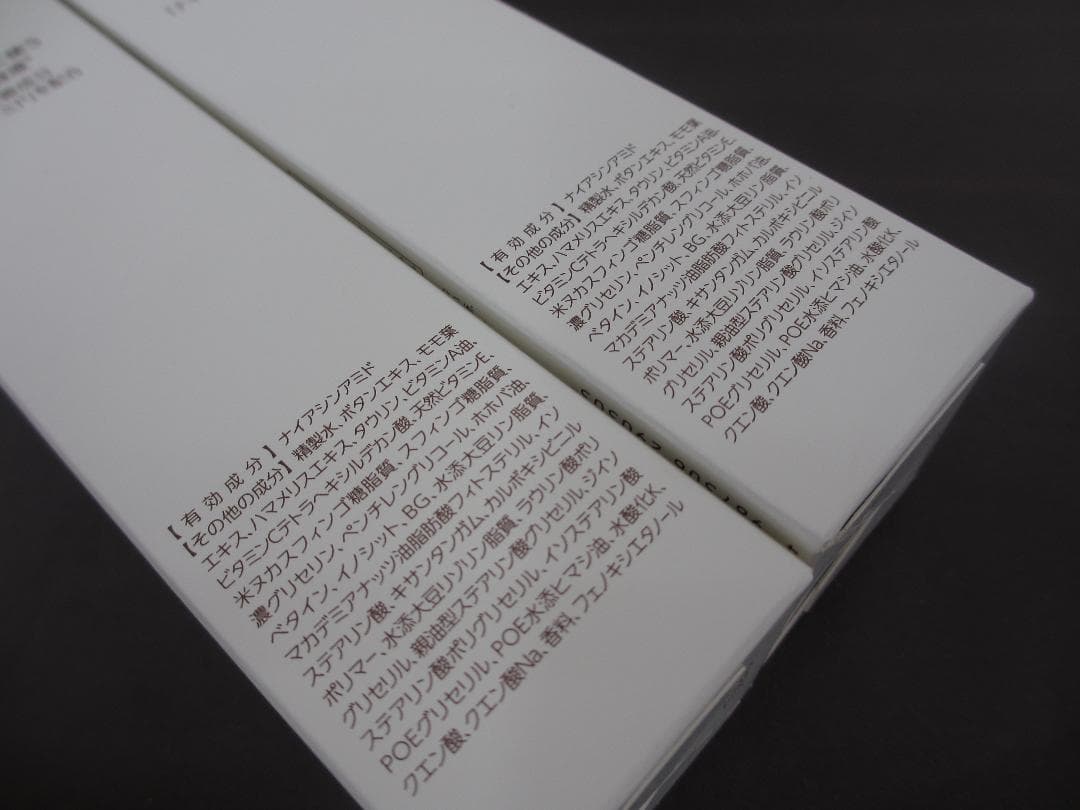 【有効成分】ナイアシンアミド
【その他の成分】精製水、ボタンエキス、モモ葉
エキス、ハマメリスエキス、タウリン、ビタミンA油、
ビタミンCテトラヘキシルデカン酸、天然ビタミンE、
米ヌカスフィンゴ糖脂質、スフィンゴ糖脂質、
濃グリセリン、ペンチレングリコール、ホホバ油、
ベタイン、イノシット、BG、水添大豆リン脂質、
マカデミアナッツ油脂肪酸フィトステリル、イソ
ステアリン酸、キサンタンガム、カルボキシビニル
ポリマー、水添大豆リゾリン脂質、ラウリン酸ポリ
グリセリル、親油型ステアリン酸グリセリル、ジイソ
ステアリン酸ポリグリセリル、イソステアリン酸
POEグリセリル、POE水添ヒマシ油、水酸化K、
クエン酸、クエン酸Na、香料、フェノキシエタノール
【有効成分】ナイアシンアミド
【その他の成分】精製水、ボタンエキス、モモ葉
エキス、ハマメリスエキス、タウリン、ビタミンA油、
ビタミンCテトラヘキシルデカン酸、天然ビタミンE、
米ヌカスフィンゴ糖脂質、スフィンゴ糖脂質、
濃グリセリン、ペンチレングリコール、ホホバ油、
ベタイン、イノシット、BG、水添大豆リン脂質、
マカデミアナッツ油脂肪酸フィトステリル、イソ
ステアリン酸、キサンタンガム、カルボキシビニル
ポリマー、水添大豆リゾリン脂質、ラウリン酸ポリ
グリセリル、親油型ステアリン酸グリセリル、ジイソ
ステアリン酸ポリグリセリル、イソステアリン酸
POEグリセリル、POE水添ヒマシ油、水酸化K、
クエン酸、クエン酸Na、香料、フェノキシエタノール